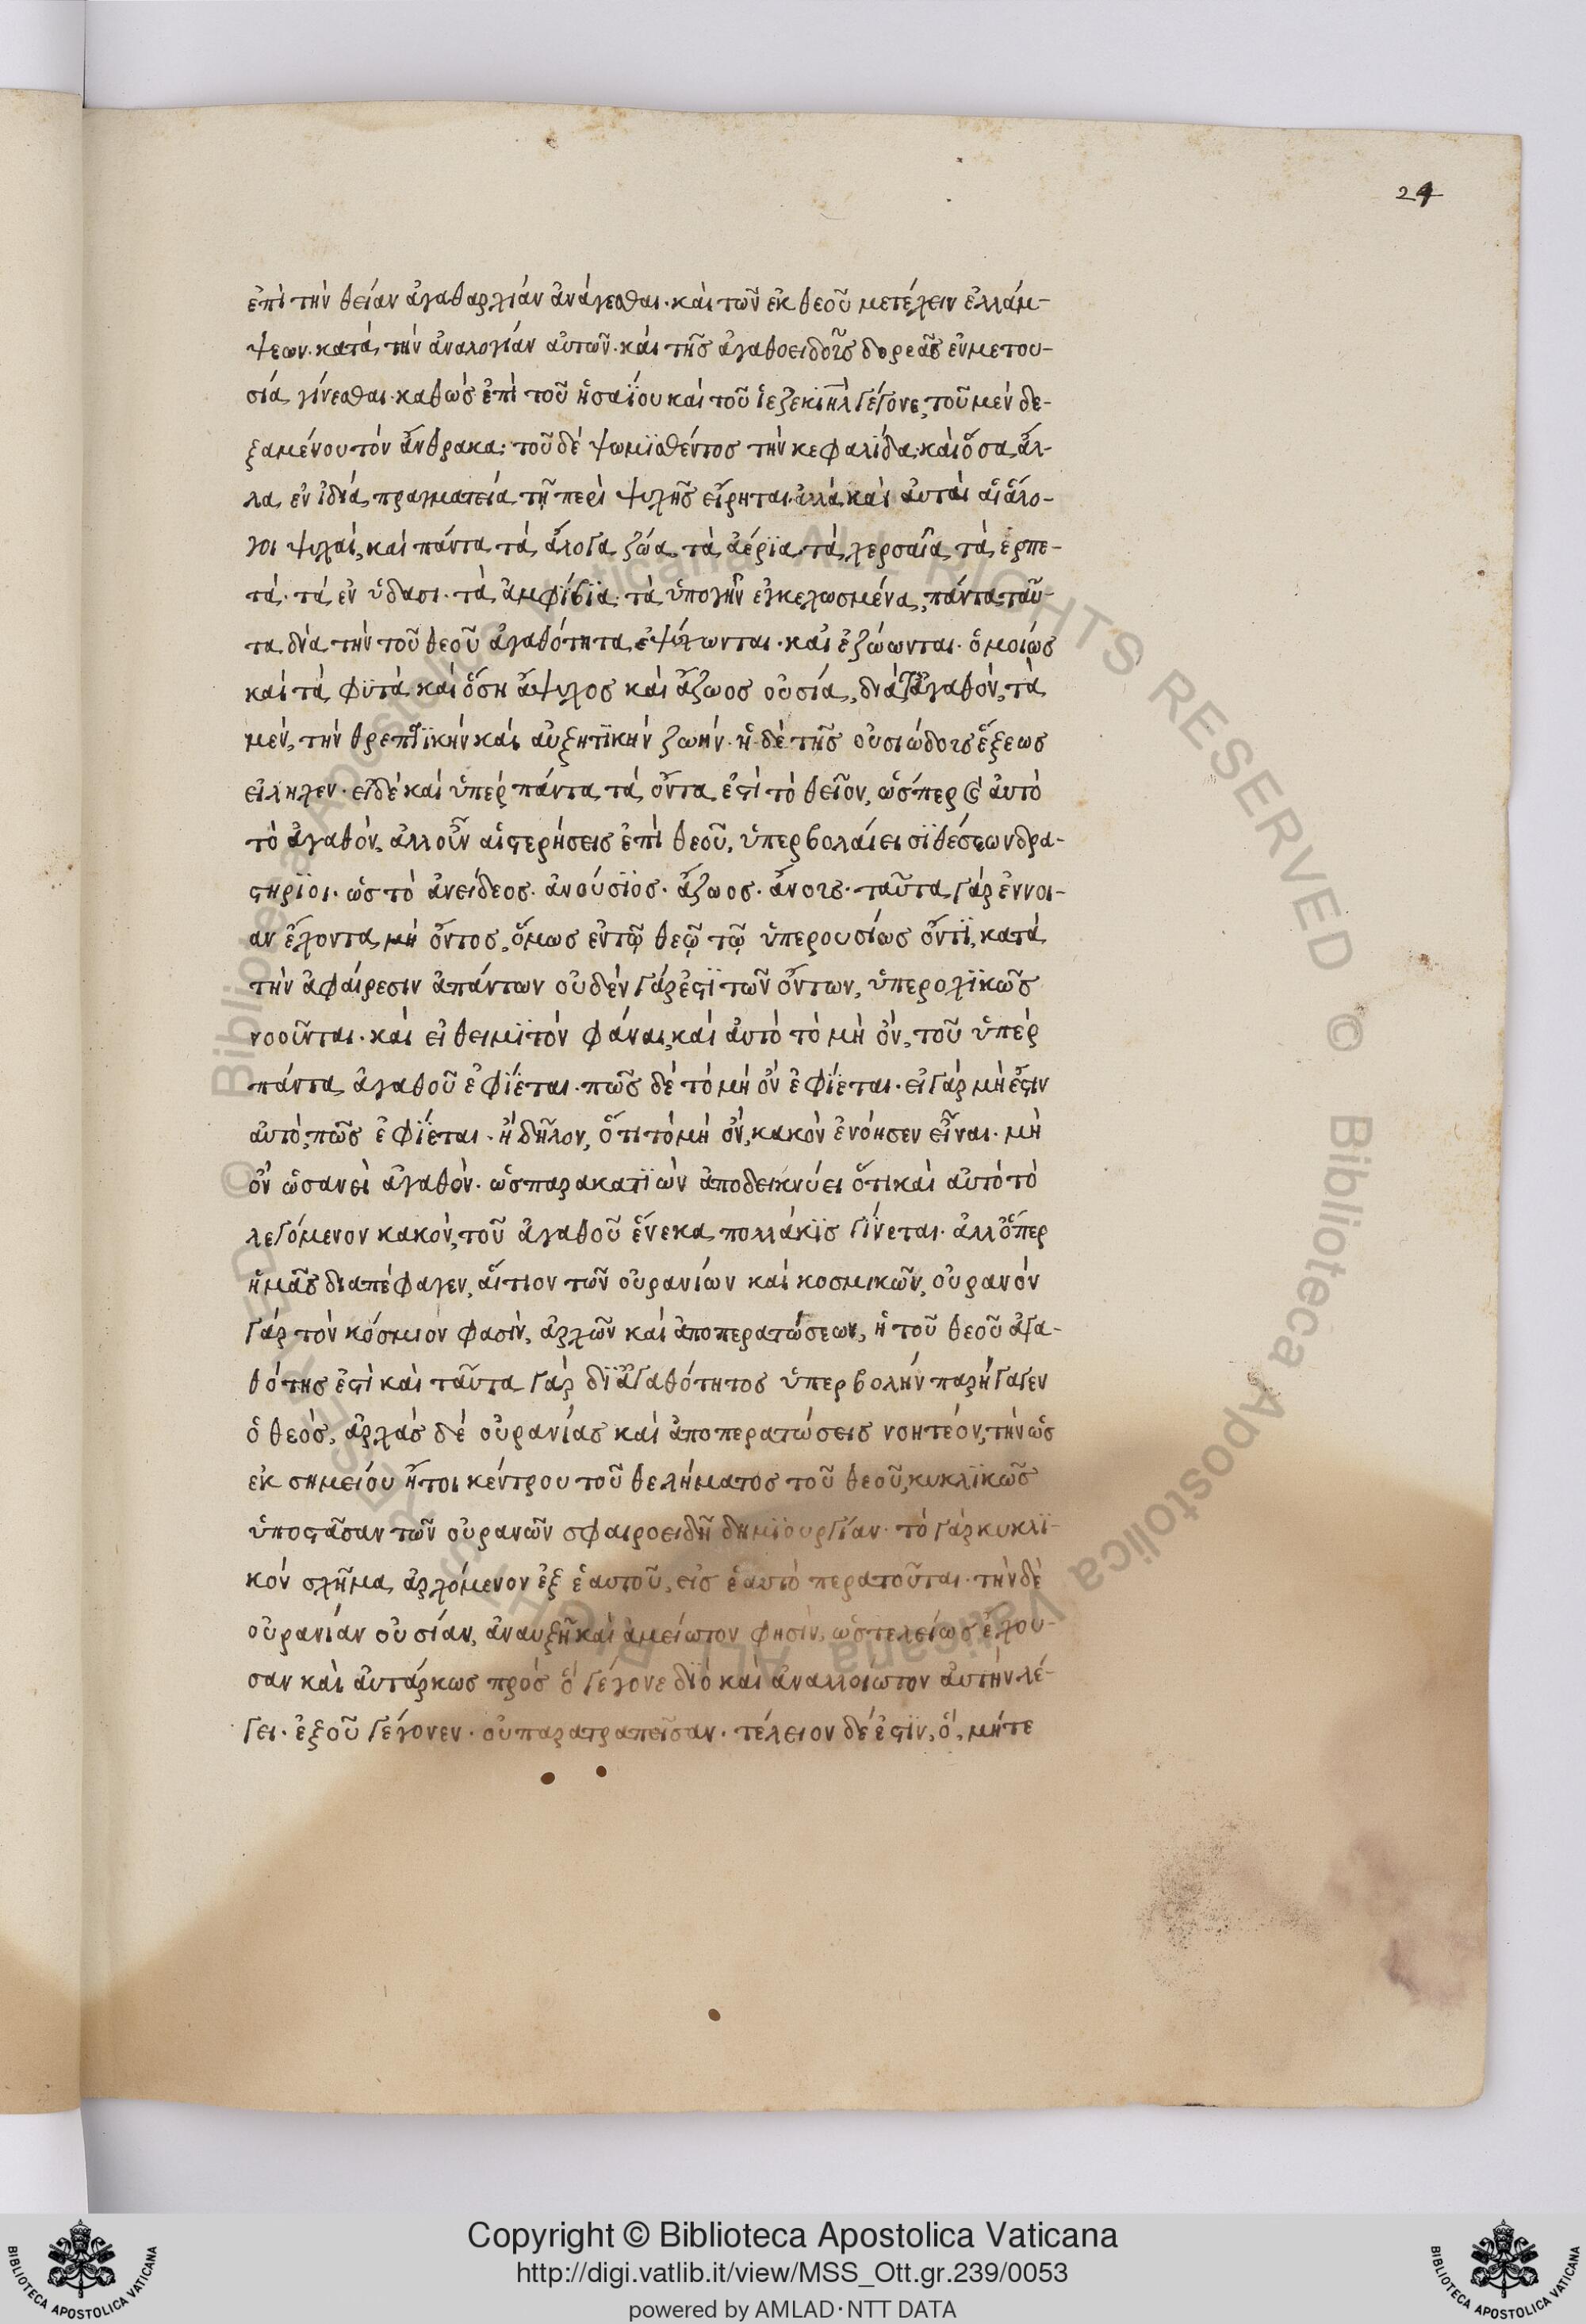 24
ἐπὶ τὴν θείαν ἀγαθαρχίαν ἀνάγεσθαι· καὶ τῶν ἐκ θεοῦ μετέχειν ἐλλάμ-
ψεων· κατὰ τὴν ἀναλογίαν αὐτῶν· καὶ τῆς ἀγαθοειδοῦς δορεᾶς ἐν μετου-
σία γίνεσθαι· καθὼς ἐπὶ τοῦ ἡσαΐου καὶ τοῦ ἰεζεκιὴλ γέγονε, τοῦ μὲν δε-
ξαμένου τὸν ἄνθρακα· τοῦ δὲ ψωμϊσθέντος τὴν κεφαλίδα· καὶ ὅσα ἄλ-
λα ἐν ἰδία πραγματεία τῇ περὶ ψυχῆς εἴρηται· ἀλλὰ καὶ αὐταὶ αἱ ἄλο-
γοι ψυχαί, καὶ πάντα τὰ ἄλογα ζώα, τὰ ἀέρϊα· τὰ χερσαῖα, τὰ ἑρπε-
τά· τὰ ἐν ὕδασι· τὰ ἀμφίβϊα· τὰ ὑπογῆν ἐγκεχωσμένα, πάντα ταῦ-
τα διὰ τὴν τοῦ θεοῦ ἀγαθότητα ἐψύχωνται· καὶ ἐζώωνται· ὁμοίως
καὶ τὰ φϋτὰ καὶ ὅση ἄψυχος καὶ ἄζωος οὐσία, διὰ τἀγαθὸν, τὰ
μὲν, τὴν θρεπτϊκὴν καὶ αὐξητϊκὴν ζωήν· ἡ δὲ τῆς οὐσιώδους ἕξεως
εἴληχεν· εἰ δὲ καὶ ὑπὲρ πάντα τὰ ὄντα ἐστὶ τὸ θεῖον, ὥσπερ ἐστὶ αὐτὸ
τὸ ἀγαθὸν, ἀλλοὖν αἱ στερήσεις ἐπὶ θεοῦ, ὑπερβολαί εἰσϊ θέσεων δρα-
στηρϊοι· ὡς τὸ ἀνείδεος· ἀνούσϊος· ἄζωος· ἄνους· ταῦτα γὰρ ἔννοι-
αν ἔχοντα μὴ ὄντος, ὅμως ἐν τῷ θεῷ τῷ ὑπερουσίως ὄντϊ, κατὰ
τὴν ἀφαίρεσιν ἁπάντων οὐδὲν γάρ ἐστϊ τῶν ὄντων, ὑπεροχϊκῶς
νοοῦνται· καὶ εἰ θεμϊτὸν φάναι, καὶ αὐτὸ τὸ μὴ ὂν, τοῦ ὑπὲρ
πάντα ἀγαθοῦ ἐφίεται· πῶς δὲ τὸ μὴ ὂν ἐφίεται· εἰ γὰρ μὴ ἔστιν
αὐτὸ, πῶς ἐφίεται· ἢ δῆλον, ὅτι τὸ μὴ ὂν, κακὸν ἐνόησεν εἶναι· μὴ
ὂν ὡσανεὶ ἀγαθὸν· ὡς παρακατϊὼν ἀποδεικνύει ὅτι καὶ αὐτὸ τὸ
λεγόμενον κακὸν, τοῦ ἀγαθοῦ ἕνεκα πολλάκϊς γίνεται· ἀλλ' ὅπερ
ἡμᾶς διαπέφαγεν, αἴτιον τῶν οὐρανίων καὶ κοσμικῶν, οὐρανὸν
γὰρ τὸν κόσμιον φασὶν, ἀρχῶν καὶ ἀποπερατώσεων, ἡ τοῦ θεοῦ ἀγα-
θότης ἐστὶ καὶ ταῦτα γὰρ δϊ' ἀγαθότητος ὑπερβολὴν παρήγαγεν
ὁ θεός, ἀρχὰς δὲ οὐρανίας καὶ ἀποπερατώσεις νοητέον, τὴν ὡς
ἐκ σημείου ἤτοι κέντρου τοῦ θελήματος τοῦ θεοῦ, κυκλϊκῶς
ὑποστᾶσαν τῶν οὐρανῶν σφαιροειδῆ δημϊουργίαν· τὸ γὰρ κυκλϊ-
κὸν σχῆμα ἀρχόμενον ἐξ ἑαυτοῦ, εἰς ἑαυτὸ περατοῦται· τὴν δὲ
οὐρανίαν οὐσίαν, ἀναυξῆ καὶ ἀμείωτον φησὶν, ὡς τελείως ἔχου-
σαν καὶ αὐτάρκως πρὸς ὃ γέγονε διὸ καὶ ἀναλλοίωτον αὐτὴν λέ-
γει· ἐξ οὗ γέγονεν· οὐ παρατραπεῖσαν· τέλειον δέ ἐστϊν, ὃ, μήτε
© Biblioteca Apostolica Vaticana ALL RIGHTS RESERVED
© Biblioteca Apostolica Vaticana ALL RIGHTS RESERVED
Copyright © Biblioteca Apostolica Vaticana
http://digi.vatlib.it/view/MSS_Ott.gr.239/0053
powered by AMLAD·NTT DATA
BIBLIOTECA APOSTOLICA VATICANA
BIBLIOTECA APOSTOLICA VATICANA